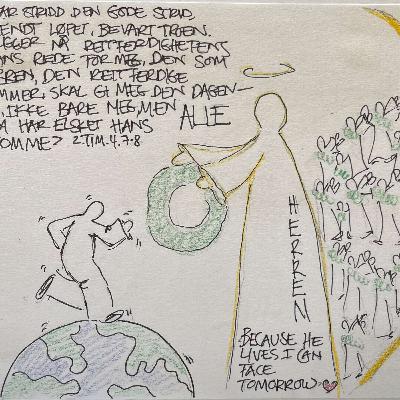 AR STRIDD DEN GODE STRID,
ENDT LØPET, BEVART TROEN.
GGER NÅ RETTFERDIGHETENS
ANS REDE FOR MEG, DEN SOM
REN, DEN RETTFERDIGE
MMER, SKAL GI MEG DEN DAGEN—
, IKKE BARE MEG, MEN ALLE
HAR ELSKET HANS
OMME> 2.TIM.4.7-8
HERREN
BECAUSE HE
LIVES I CAN
FACE
TOMORROW